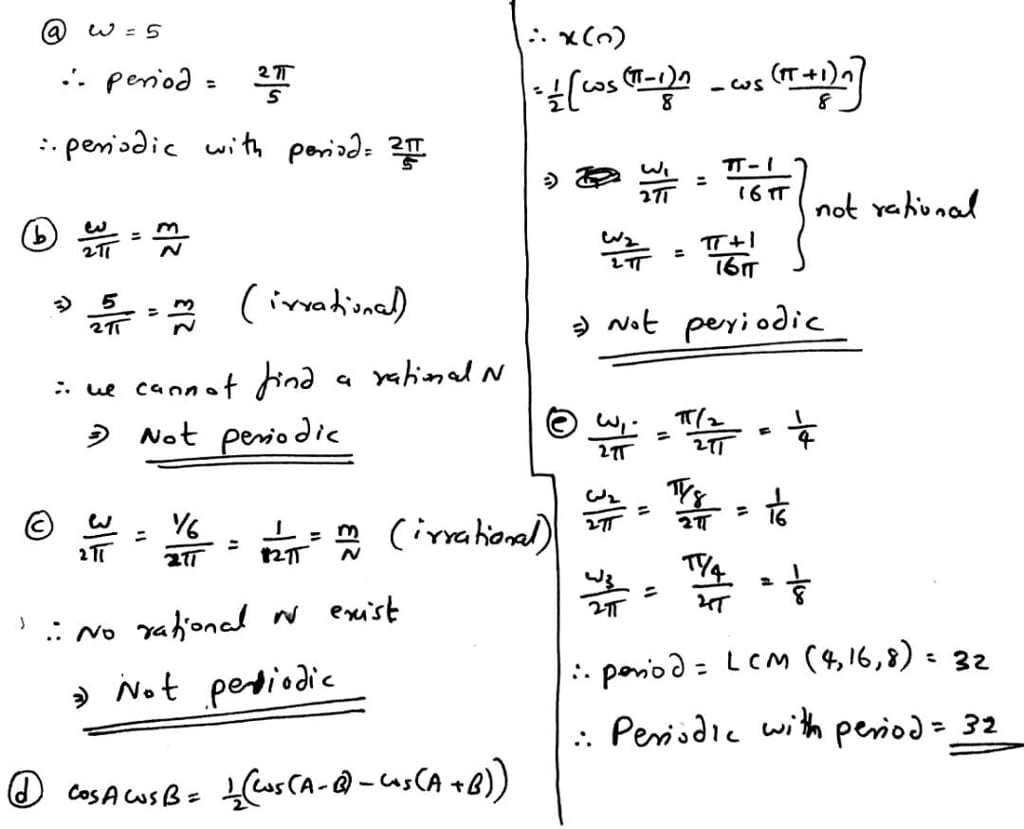 ⓐ ω = 5
∴ period = 2π/5
∴ periodic with period = 2π/5
ⓑ ω/2π = m/N
⇒ 5/2π = m/N (irrational)
∴ we cannot find a rational N
⇒ Not periodic
ⓒ ω/2π = 1/6/2π = 1/12π = m/N (irrational)
∴ No rational N exist
⇒ Not periodic
ⓓ cosA cosB = 1/2(cos(A-B) - cos(A+B))
∴ x(n)
= 1/2[cos (π-1)n/8 - cos (π+1)n/8]
⇒ ω₁/2π = π-1/16π
ω₂/2π = π+1/16π } not rational
⇒ Not periodic
ⓔ ω₁/2π = π/2/2π = 1/4
ω₂/2π = π/8/2π = 1/16
ω₃/2π = π/4/2π = 1/8
∴ period = LCM (4,16,8) = 32
∴ Periodic with period = 32